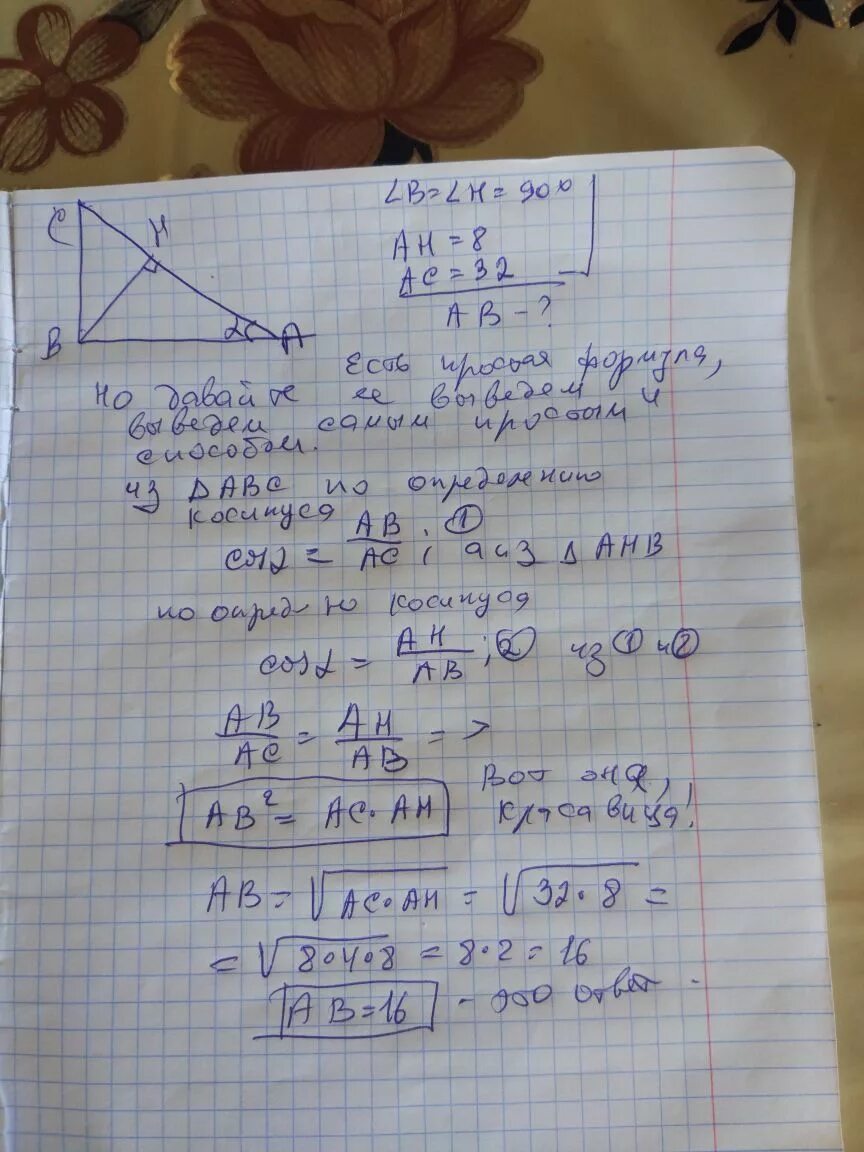 C
H
B
α
A
∠B=∠H=90°
AH=8
AC=32
AB-?
Есть простая формула,
но давайте ее выведем и
выведем самым простым
способом.
из ΔABC по определению
косинуса
cosα = AB/AC; ① а из ΔAHB
по опред-ю косинуса
cosα = AH/AB; ② из ① и ②
AB/AC = AH/AB =>
AB² = AC·AH
Вот она,
красавица!
AB = √AC·AH = √32·8 =
= √8·4·8 = 8·2 = 16
AB=16 - это ответ.